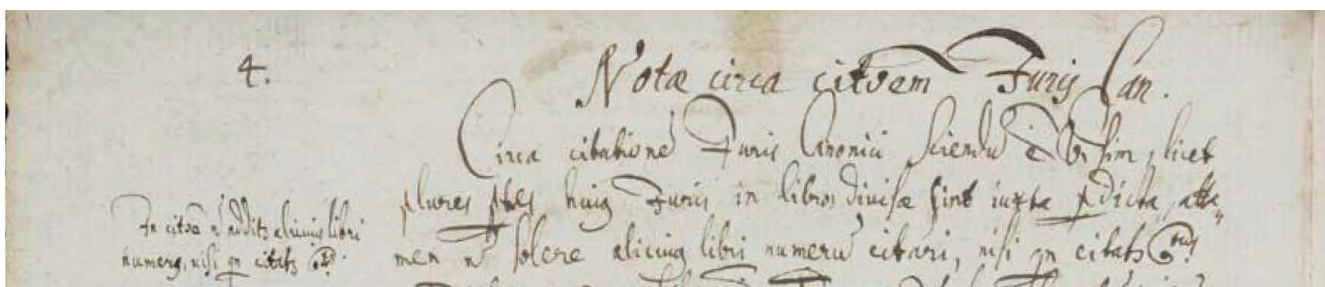 4.
Notæ circa cit̄oem Juris Can.
Circa citationē Juris Canonici Sciendū ē licet
plures ptes huiq Juris in libros divisæ sint iuxta pdicta, atta=
men n̄ solere alicuiq libri numerū citari, nisi qn citatr
In cit̄oe n̄ additr alicuius libri
numerq, nisi qn citatr